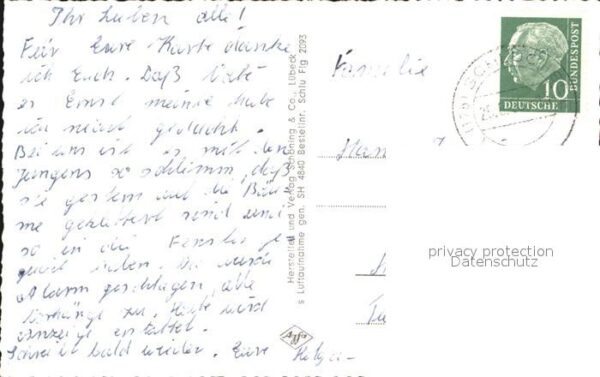 Ihr Lieben alle!
Für Eure Karte danke
ich Euch. Daß
es Ernst meinte habe
ich nicht gedacht.
Bei uns ist es mit den
Jungens so schlimm, daß
sie gestern auf die Bäu-
me geklettert sind und
so in die Fenster ge-
haben. Da wurde
Alarm geschlagen, alle
Vorhänge zu. Heute wird
Anzeige erstattet.
Schreibt bald wieder. Eure Helga
Herstellung und Verlag Schöning & Co., Lübeck
s Luftaufnahme gen. SH 4840 Bestellnr. Schlu Flg 2093
Agfa
Familie
10
DEUTSCHE
BUNDESPOST
privacy protection
Datenschutz